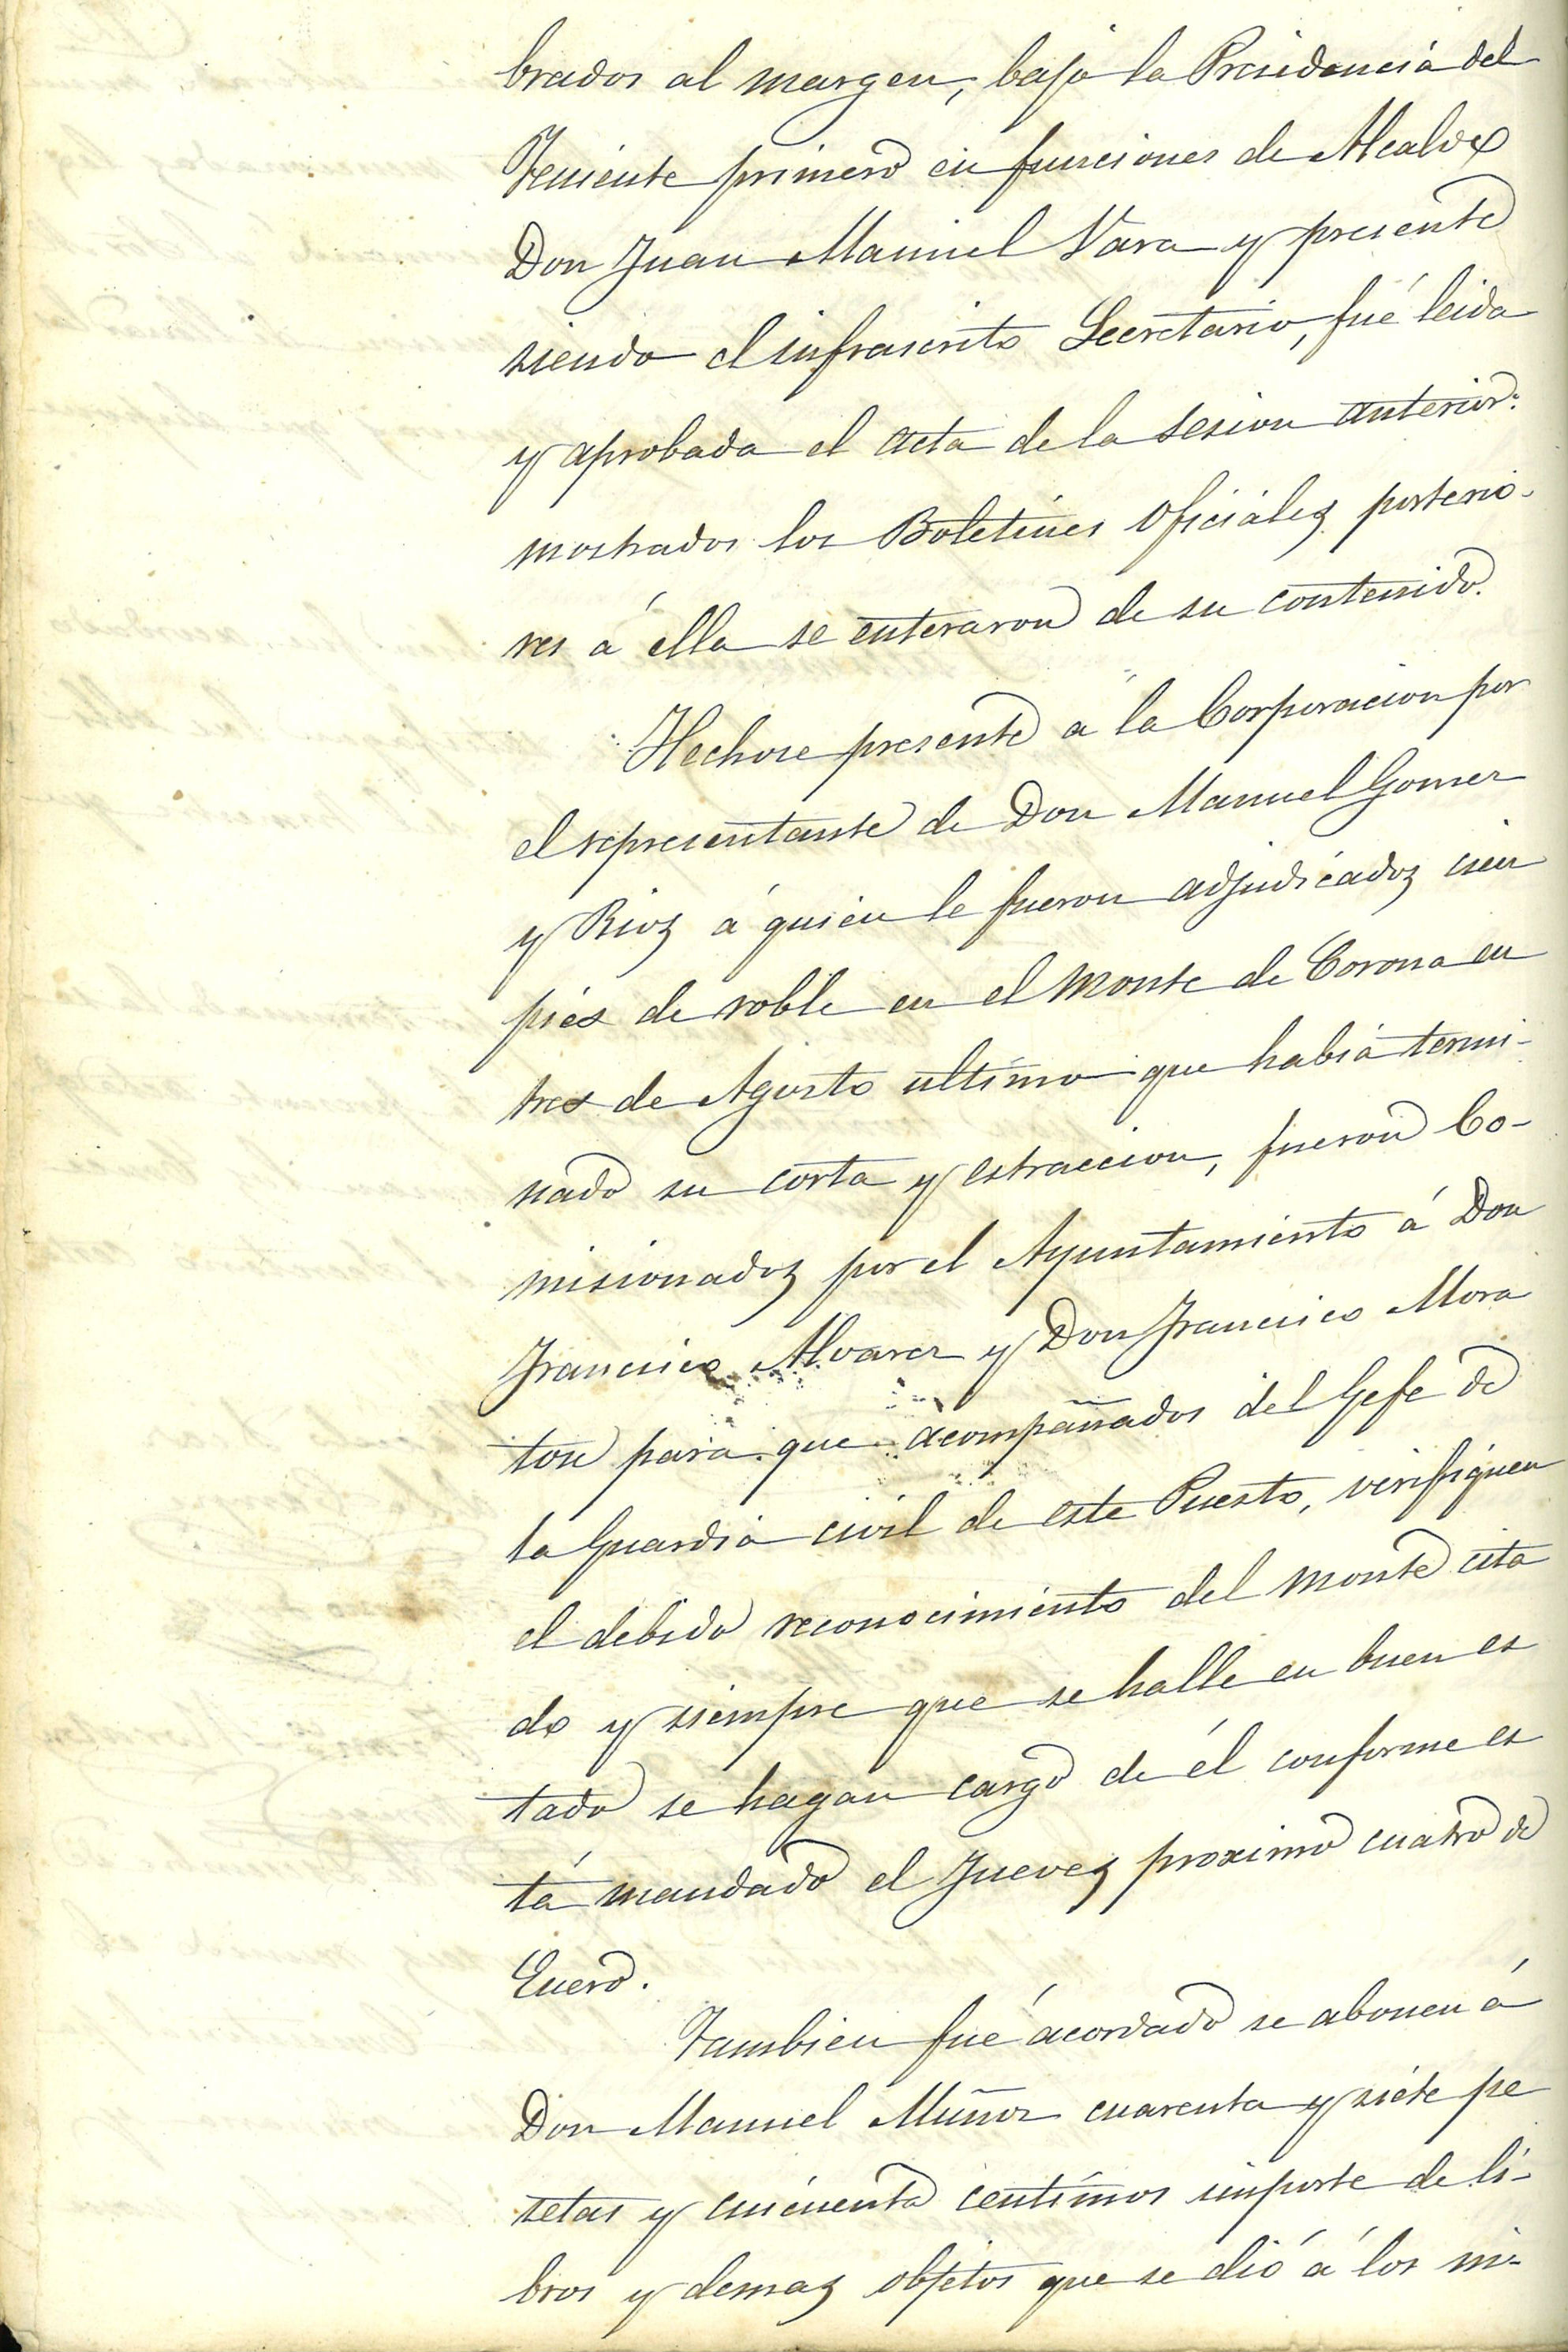 brados al margen, bajo la Presidencia del
Teniente primero en funciones de Alcalde
Don Juan Manuel Vara y presente
siendo el infrascrito Secretario, fué leida
y aprobada el acta de la sesion anterior:
mostrados los Boletines Oficiales posterio-
res á ella se enteraron de su contenido.
Hechose presente a la Corporacion por
el representante de Don Manuel Gomez
y Rios á quien le fueron adjudicados cien
piés de roble en el monte de Corona en
tres de Agosto ultimo que habia termi-
nado su corta y estraccion, fueron Co-
misionados por el Ayuntamiento á Don
Francisco Alvarez y Don Francisco Mora
ton para que acompañados del Gefe de
la Guardia civil de este Puesto, verifiquen
el debido reconocimiento del monte cita
do y siempre que se halle en buen es
tado se hagan cargo de él conforme es
tá mandado el Jueves proximo cuatro de
Enero.
Tambien fué acordado se abonen á
Don Manuel Muñoz cuarenta y siete pe
setas y cincuenta centimos importe de li-
bros y demas objetos que se dió á los ni-